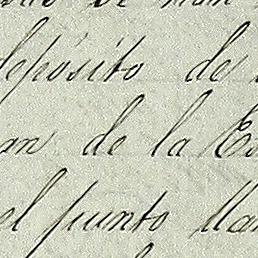 depósito de
an de la Es
el punto llam